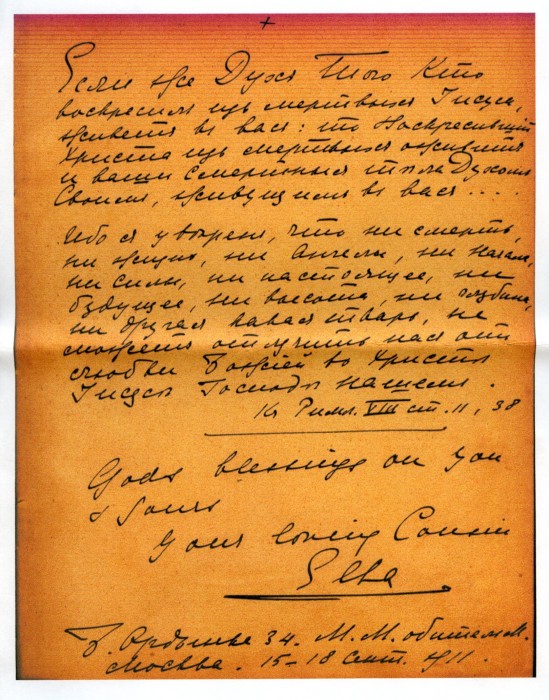 +
Если же Духъ Того Кто
воскресилъ изъ мертвыхъ Iисуса,
живетъ въ васъ: то Воскресившiй
Христа изъ мертвыхъ оживитъ
и ваши смертныя тѣла Духомъ
Своимъ, живущимъ въ васъ...
Ибо я увѣренъ, что ни смерть,
ни жизнь, ни Ангелы, ни Начала,
ни Силы, ни настоящее, ни
будущее, ни высота, ни глубина,
ни другая какая тварь, не
можетъ отлучить насъ отъ
любви Божiей во Христѣ
Iисусѣ Господѣ нашемъ.
Къ Римл. VIII ст. 11, 38
Gods blessings on you
& yours
Your loving Cousin
Ella
Б. Ордынка 34. М. М. обители М.
Москва. 15-18 сент. 1911.